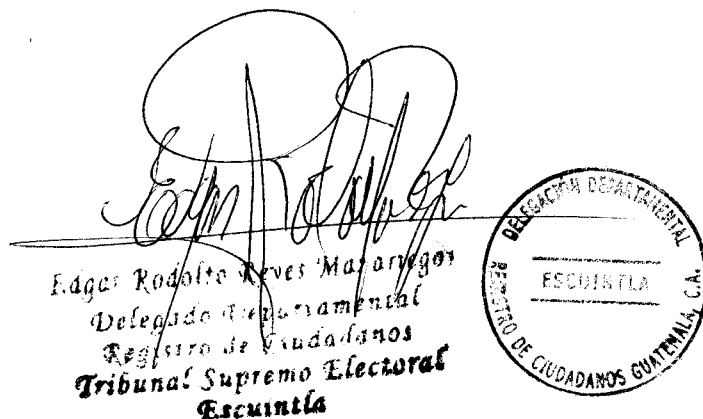 Edgar Rodolfo Reyes Mazariegos
Delegado Departamental
Registro de Ciudadanos
Tribunal Supremo Electoral
Escuintla
DELEGACIÓN DEPARTAMENTAL
ESCUINTLA
REGISTRO DE CIUDADANOS GUATEMALA, C.A.